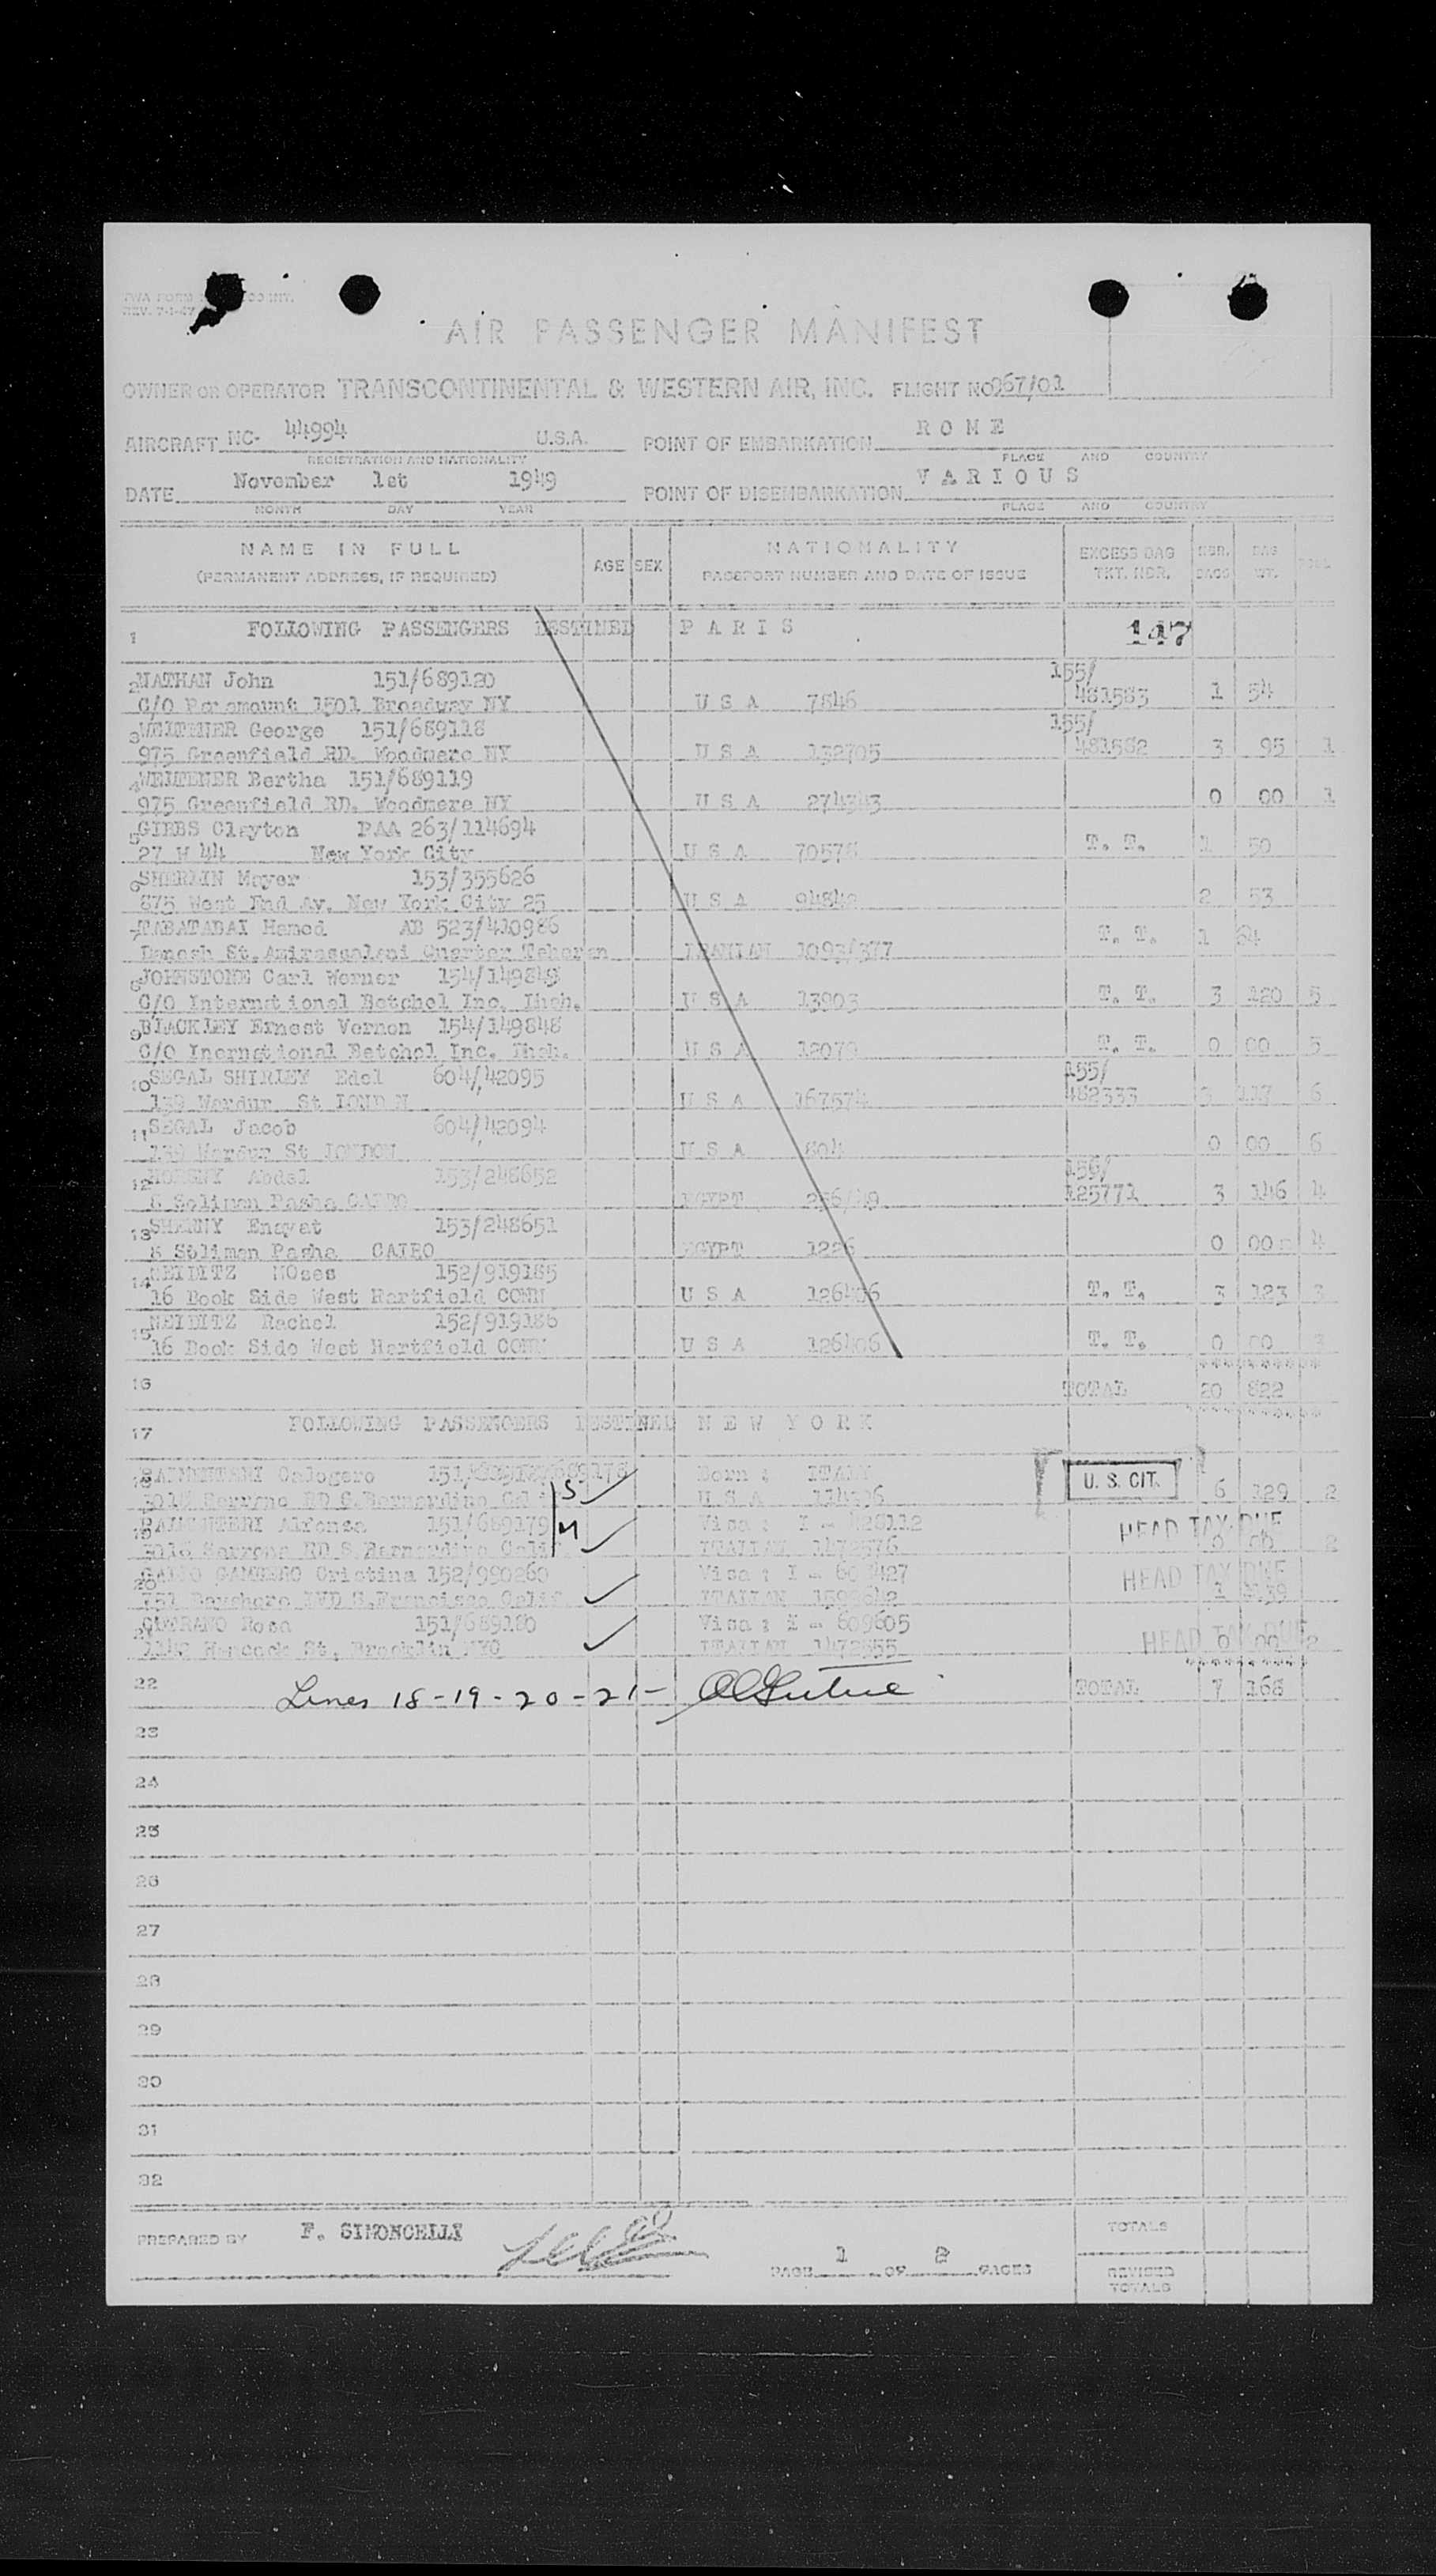 AIR PASSENGER MANIFEST
OWNER OR OPERATOR TRANSCONTINENTAL & WESTERN AIR, INC. FLIGHT NO 967/01
AIRCRAFT NC- 44994 U.S.A. POINT OF EMBARKATION ROME
REGISTRATION AND NATIONALITY PLACE AND COUNTRY
DATE November 1st 1949 POINT OF DISEMBARKATION VARIOUS
MONTH DAY YEAR PLACE AND COUNTRY
NAME IN FULL AGE SEX NATIONALITY EXCESS BAG NBR. BAG
(PERMANENT ADDRESS, IF REQUIRED) PASSPORT NUMBER AND DATE OF ISSUE TKT. NBR. BAGS WT.
1 FOLLOWING PASSENGERS DESTINED PARIS 147
2 NATHAN John 151/689120 155/
C/O Paramount 1501 Broadway NY USA 7846 481583 1 54
3 WELTNER George 151/689118 155/
975 Greenfield RD. Woodmere NY USA 132705 481582 3 95 1
4 WELTNER Bertha 151/689119
975 Greenfield RD. Woodmere NY USA 274343 0 00 1
5 GIBBS Clayton PAA 263/114694
27 W 44 New York City USA 70578 T. T. 1 50
6 SHERMIN Mayer 153/355626
875 West End Av. New York City 25 USA 2 53
7 TABATABAI Hamed AB 523/410986
St. Quarter Teheran IRANIAN 1093/377 T. T. 1
8 JOHNSTONE Carl Werner 154/149849
C/O International Betchel Inc. USA 13903 T. T. 3 120 5
9 BLACKLEY Ernest Vernon 154/149848
C/O Inernational Betchel Inc. USA T. T. 0 00 5
10 SEGAL SHIRLEY Edel 604/42095 155/
139 Wardur St USA 167574 482333 3 117 6
11 SEGAL Jacob 604/42094
139 Wardur St LONDON USA 804 0 00 6
12 Abdel 153/248652 156/
8 Soliman Pasha CAIRO EGYPT 125771 3 146 4
13 Enayat 153/248651
8 Soliman Pasha CAIRO EGYPT 1226 0 00 4
14 NEIDITZ MOses 152/919185
16 Book Side West Hartfield CONN USA T. T. 3 123 3
15 NEIDITZ Rachel 152/919186
16 Book Side West Hartfield CONN USA 126406 T. T. 0 00 3
16 TOTAL 20 822
17 FOLLOWING PASSENGERS DESTINED NEW YORK
18 Calogero Born : ITALY U. S. CIT.
S USA 6 129 2
19 PALMINTERI Alfonsa 151/689179 M Visa : HEAD TAX DUE
ITALIAN 1472576 0 00 2
20 GALLO GAMBERO Cristina 152/990260 Visa : HEAD TAX DUE
751 Bayshore S.Francisco Calif ITALIAN 1 39
21 Rosa 151/689180 Visa : 609605
1142 Hancock St, Brooklin NYC ITALIAN 1472555 HEAD TAX DUE 0 00 2
22 Lines 18-19-20-21- TOTAL 7 168
23
24
25
26
27
28
29
30
31
32
PREPARED BY F. SIMONCELLI TOTALS
PAGE 1 OF 2 PAGES REVISED
TOTALS